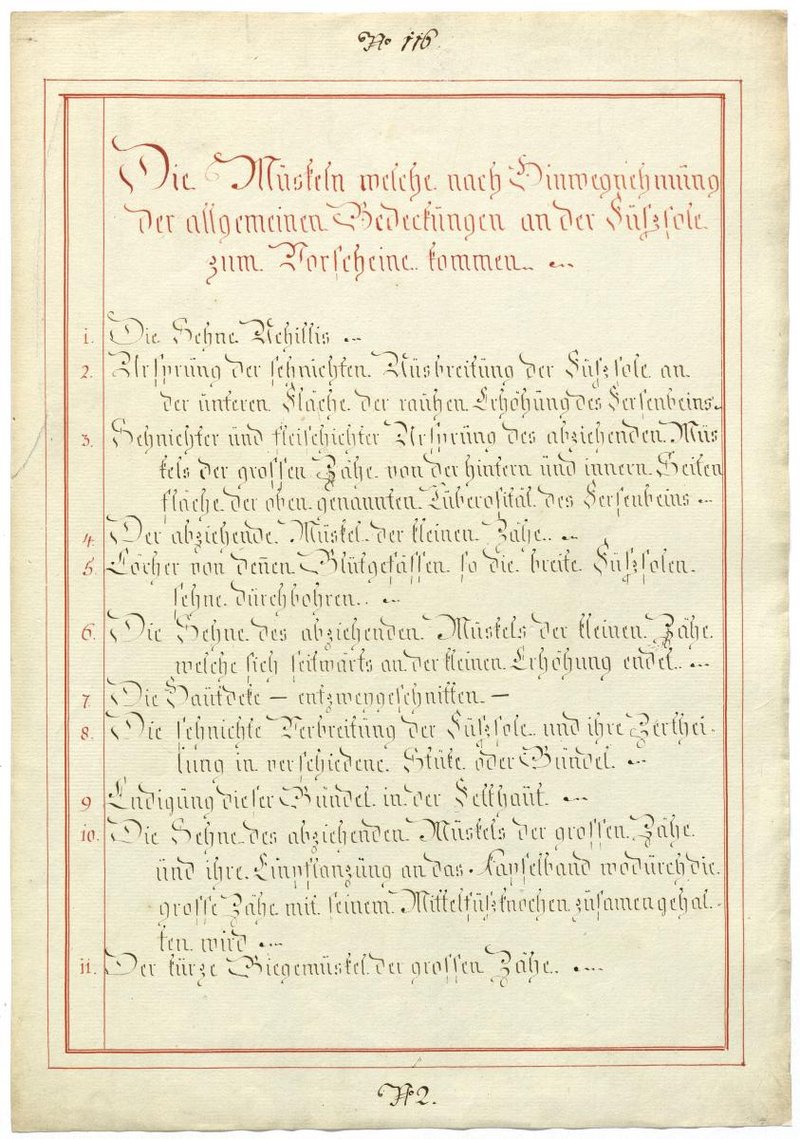 No 116.
Die Muskeln welche nach Hinwegnehmung
der allgemeinen Bedeckungen an der Fußsole
zum Vorscheine kommen.
1. Die Sehne Achillis
2. Ursprung der sehnichten Ausbreitung der Fußsole an
der unteren Fläche der rauhen Erhöhung des Fersenbeins.
3. Sehnichter und fleischichter Ursprung des abziehenden Mus
kels der grossen Zähe von der hintern und innern Seiten
fläche der oben genannten Tuberosität des Fersenbeins
4. Der abziehende Muskel der kleinen Zähe.
5. Löcher von denen Blutgefässen so die breite Fußsolen
sehne durchbohren.
6. Die Sehne des abziehenden Muskels der kleinen Zähe
welche sich seitwärts an der kleinen Erhöhung endet.
7 Die Hautdeke — entzweygeschnitten —
8. Die sehnichte Verbreitung der Fußsole und ihre Zerthei-
lung in verschiedene Stüke oder Bündel.
9 Endigung dieser Bündel in der Fetthaut.
10. Die Sehne des abziehenden Muskels der grossen Zähe
und ihre Einpflanzung an das Kapselband wodurch die
grosse Zähe mit seinem Mittelfußknochen zusamengehal-
ten wird
11. Der kurze Biegemuskel der grossen Zähe.
No 2.